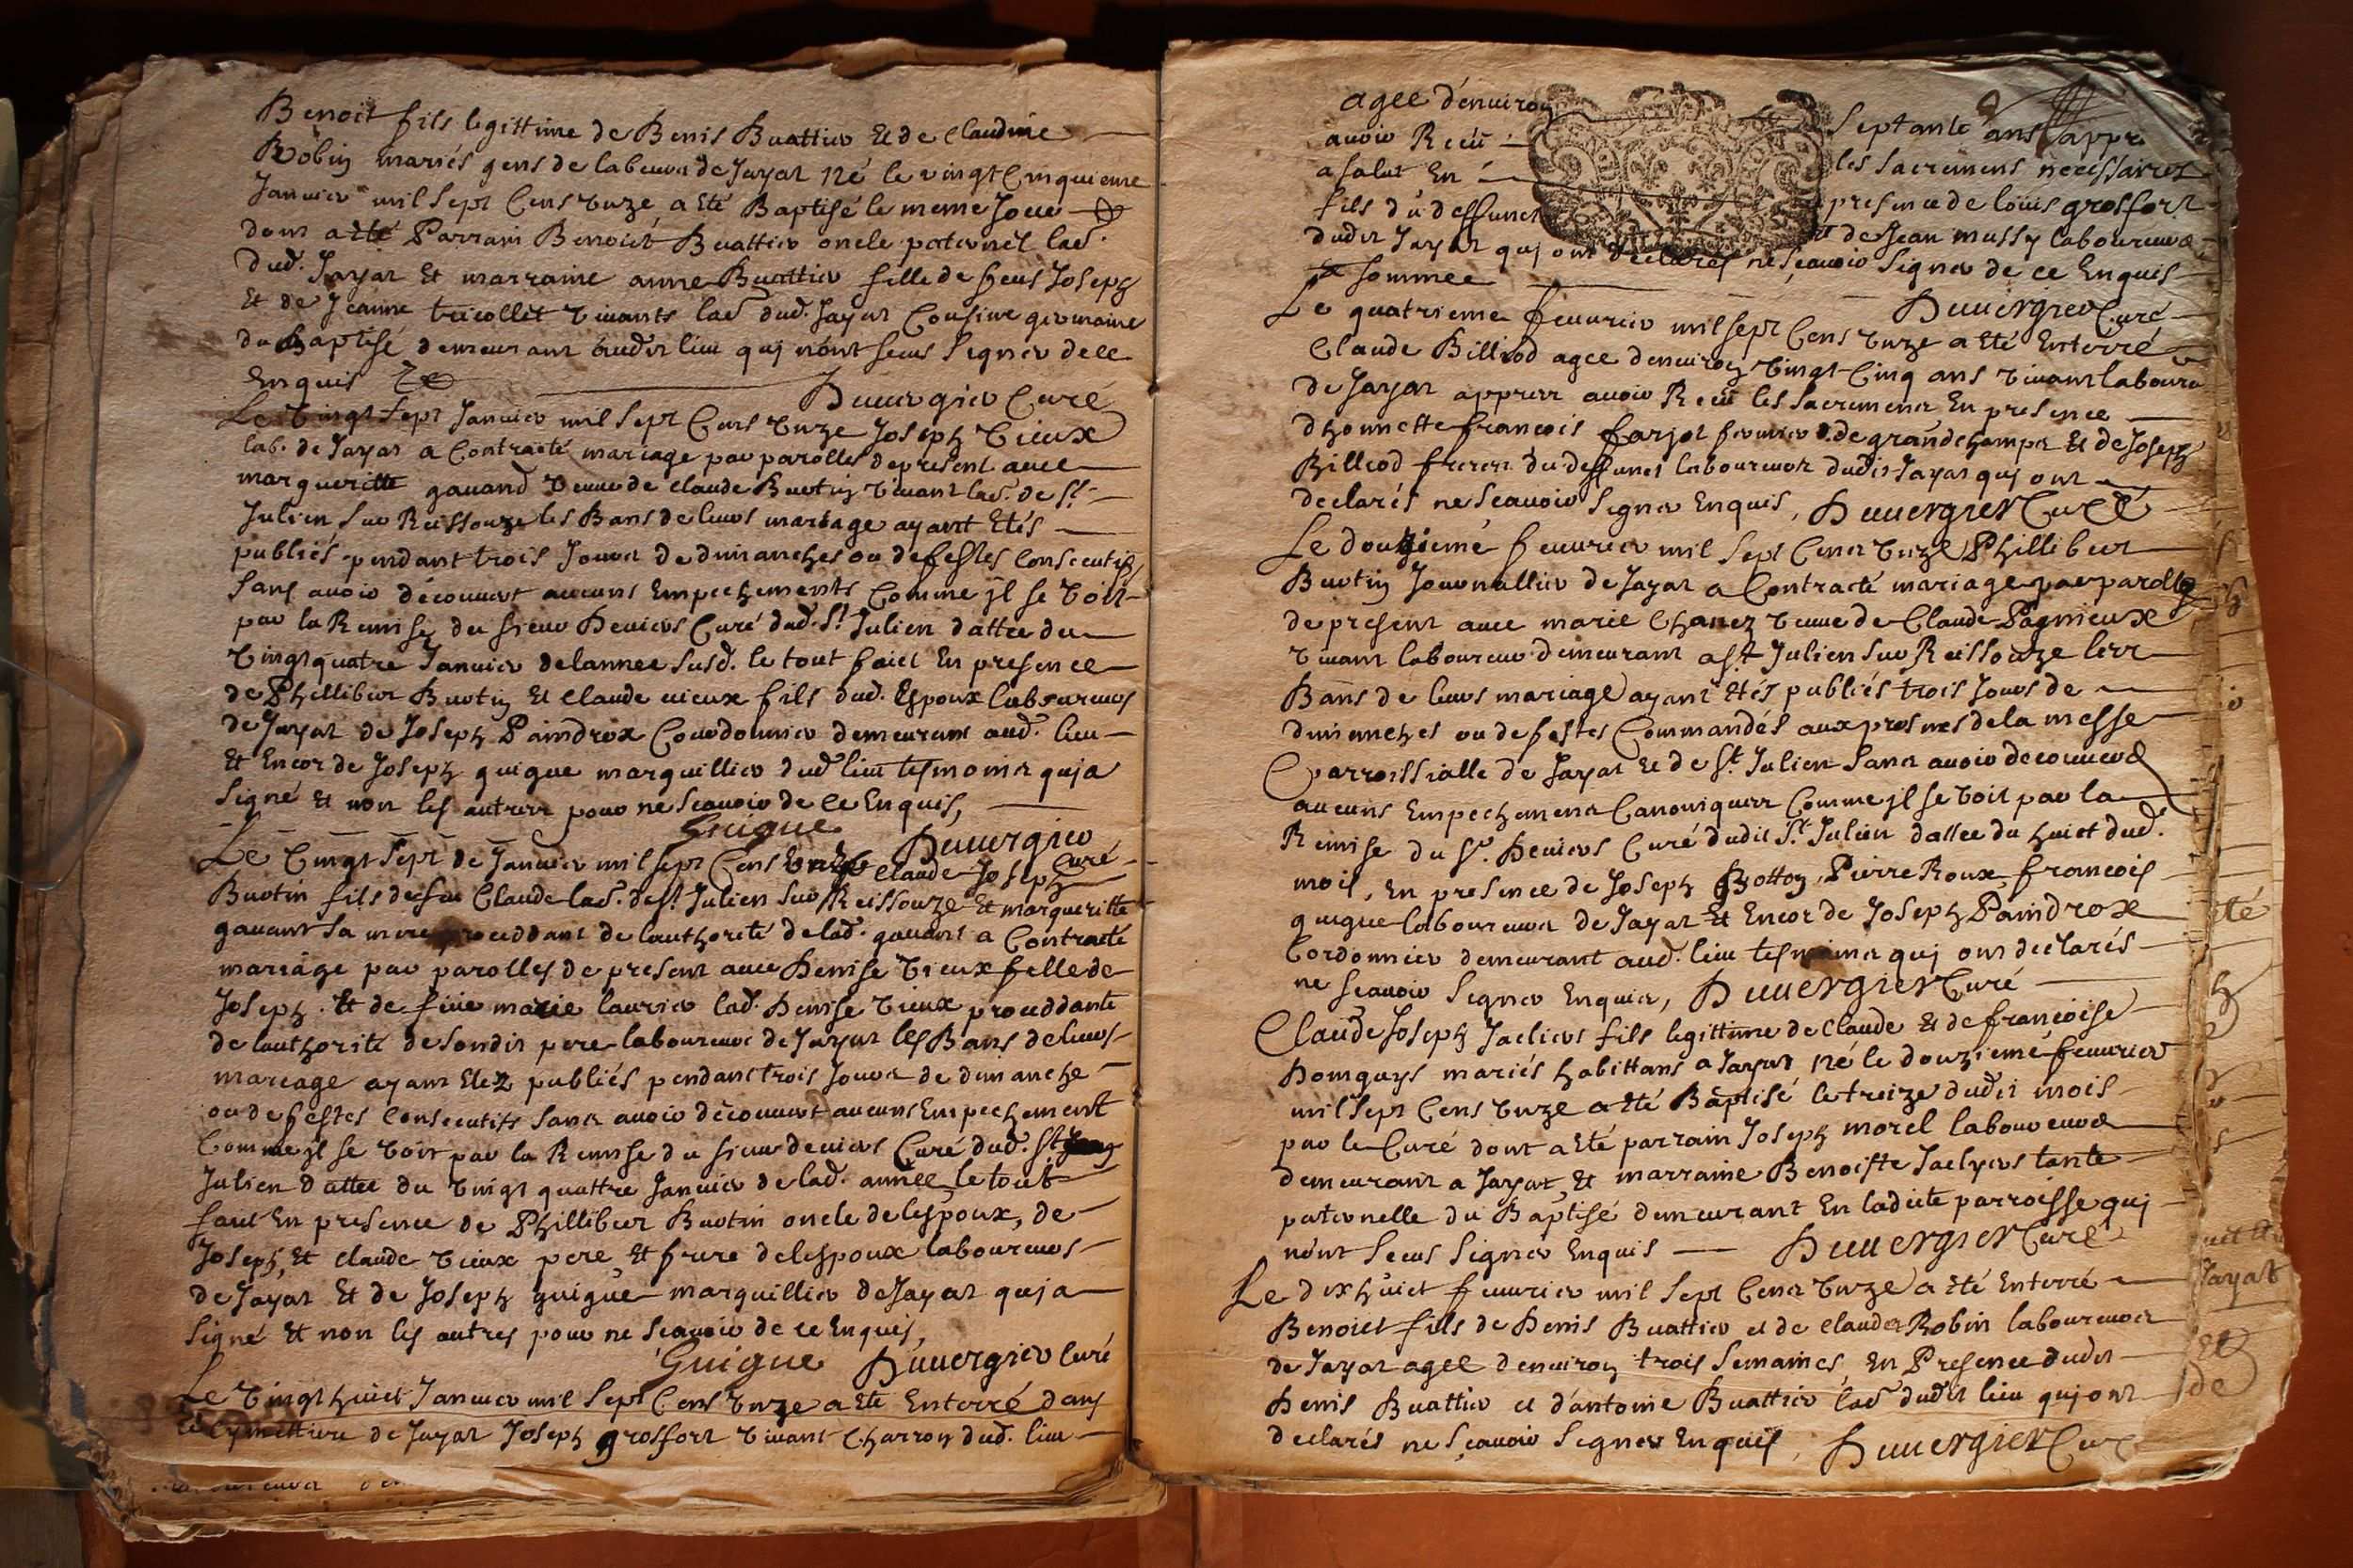 Benoit fils legittime de Benis Buattier Et de Claudine
Robin mariés gens de labeur de Jayat né le vingt Cinquieme
Janvier mil sept Cens Unze a Eté Baptisé le meme Jour
dont a Eté Parrain Benoict Buattier oncle paternel lad.
dud. Jayat Et marraine anne Buattier fille de feus Joseph
Et de Jeanne tricollet vivants lad dud. Jayat Cousine germaine
du Baptisé demeurant audit lieu quj n'ont sceus Signer de ce
Enquis
Duuergier Curé
Le Vingt sept Janvier mil sept Cens Unze Joseph Vieux
lab. de Jayat a Contracté mariage par parolles de present avec
margueritte gauand Veuve de Claude Buotin vivant lad. de St.
Julien sur Reissouze les Bans de leurs mariage ayant Etés
publiés pendant trois Jours de dimanches ou de festes Consecutifs
sans avoir découvert aucuns Empechements Comme jl se Voit
par la Remise du sieur Deviers Curé dud. St Julien dattée du
Vingt quatre Janvier de lannee susd. le tout faict En presence
de Phillibert Buotin Et Claude vieux fils dud. Espoux laboureurs
de Jayat de Joseph Paindrox Courdonnier demeurant aud. lieu
Et Encor de Joseph guigue marguillier dud lieu tesmoins quj a
Signé Et non les autres pour ne Scavoir de ce Enquis,
Guigue Duuergier
Curé
Le Vingt Sept de Janvier mil sept Cens Unze Claude Joseph
Buotin fils de feu Claude lad. de St Julien sur Reissouze Et margueritte
gauant sa mere proceddant de lauthorité de lad. gauant a Contracté
mariage par parolles de present avec Denise Vieux fille de
Joseph Et de füe marie laurier lad. Denise Vieux proceddante
de lauthorité de sondit pere laboureur de Jayat les Bans de leurs
mariage ayant Etez publiés pendant trois Jours de dimanche
ou de festes Consecutifs sans avoir découvert aucuns Empechement
Comme jl se Voit par la Remise du sieur deviers Curé dud. St
Julien dattée du Vingt quattre Janvier de lad. année le tout
faict En presence de Phillibert Buotin oncle de lespoux, de
Joseph, Et Claude Vieux pere, Et frere de lespoux laboureurs
de Jayat Et de Joseph guigue marguillier de Jayat quj a
signé Et non les autres pour ne Scavoir de ce Enquis,
Guigue Duuergier Curé
Le Vingt huict Janvier mil sept Cens Unze a Eté Enterré dans
le Cymettiere de Jayat Joseph grosfort vivant Charron dud. lieu
agee d'environ Septante ans appr
avoir Receu les sacremens necessaires
a salut En presence de loüis grosfort
fils du deffunct Et de Jean mussy laboureur
dudit Jayat quj ont declarés ne Scavoir Signer de ce Enquis
sommee
Duuergier Curé
Le quatrieme feuvrier mil sept Cens Unze a Eté Enterré
Claude Billiod agee denviron Vingt Cinq ans vivant laboureur
de Jayat apprer avoir Receu les sacremens En presence
dhonnette francois farjot fermier de grandchamps Et de Joseph
Billiod freres du deffunct laboureurs dudit Jayat quj ont
declarés ne Scavoir Signer Enquis, Duuergier Curé
Le douzieme feuvrier mil sept Cens Unze Phillibert
Buotin Jouvnallier de Jayat a Contracté mariage par parolles
de present avec marie Chanez veuve de Claude Pagnieux
vivant laboureur demeurant a St Julien sur Reissouze les
Bans de leurs mariage ayant Etés publiés trois Jours de
dimenches ou de festes Commandés aux prosnes de la messe
parroissialle de Jayat Et de St Julien sans avoir découverd
aucuns Empechemens Canoniques Comme jl se Voit par la
Remise du Sr. Deviers Curé dudit St Julien dattee du huict dud.
mois, En presence de Joseph Botton, Pierre Roux, francois
guigue laboureurs de Jayat Et Encor de Joseph Paindrox
Cordonnier demeurant aud. lieu tesmoins quj ont declarés
ne scavoir Signer Enquis, Duuergier Curé
Claude Joseph Jacliers fils legittime de Claude Et de francoise
Domguys mariés habittans a Jayat né le douzieme feuvrier
mil sept Cens Unze a Eté Baptisé le treize dudit mois
par le Curé dont a Eté parrain Joseph morel laboureur
demeurant a Jayat, Et marraine Benoiste Jaclyers tante
paternelle du Baptisé demeurant En ladicte parroisse quj
n'ont sceus Signer Enquis Duuergier Curé
Le dix huict feuvrier mil sept Cens Unze a Eté Enterré
Benoict fils de Denis Buattier et de Claudes Robin laboureurs
de Jayat agee denviron trois semaines En Presence dudit
Denis Buattier et d'antoine Buattier lad dudit lieu quj ont
declarés ne scavoir Signer Enquis, Duuergier Curé
été
Jayat
Et
de